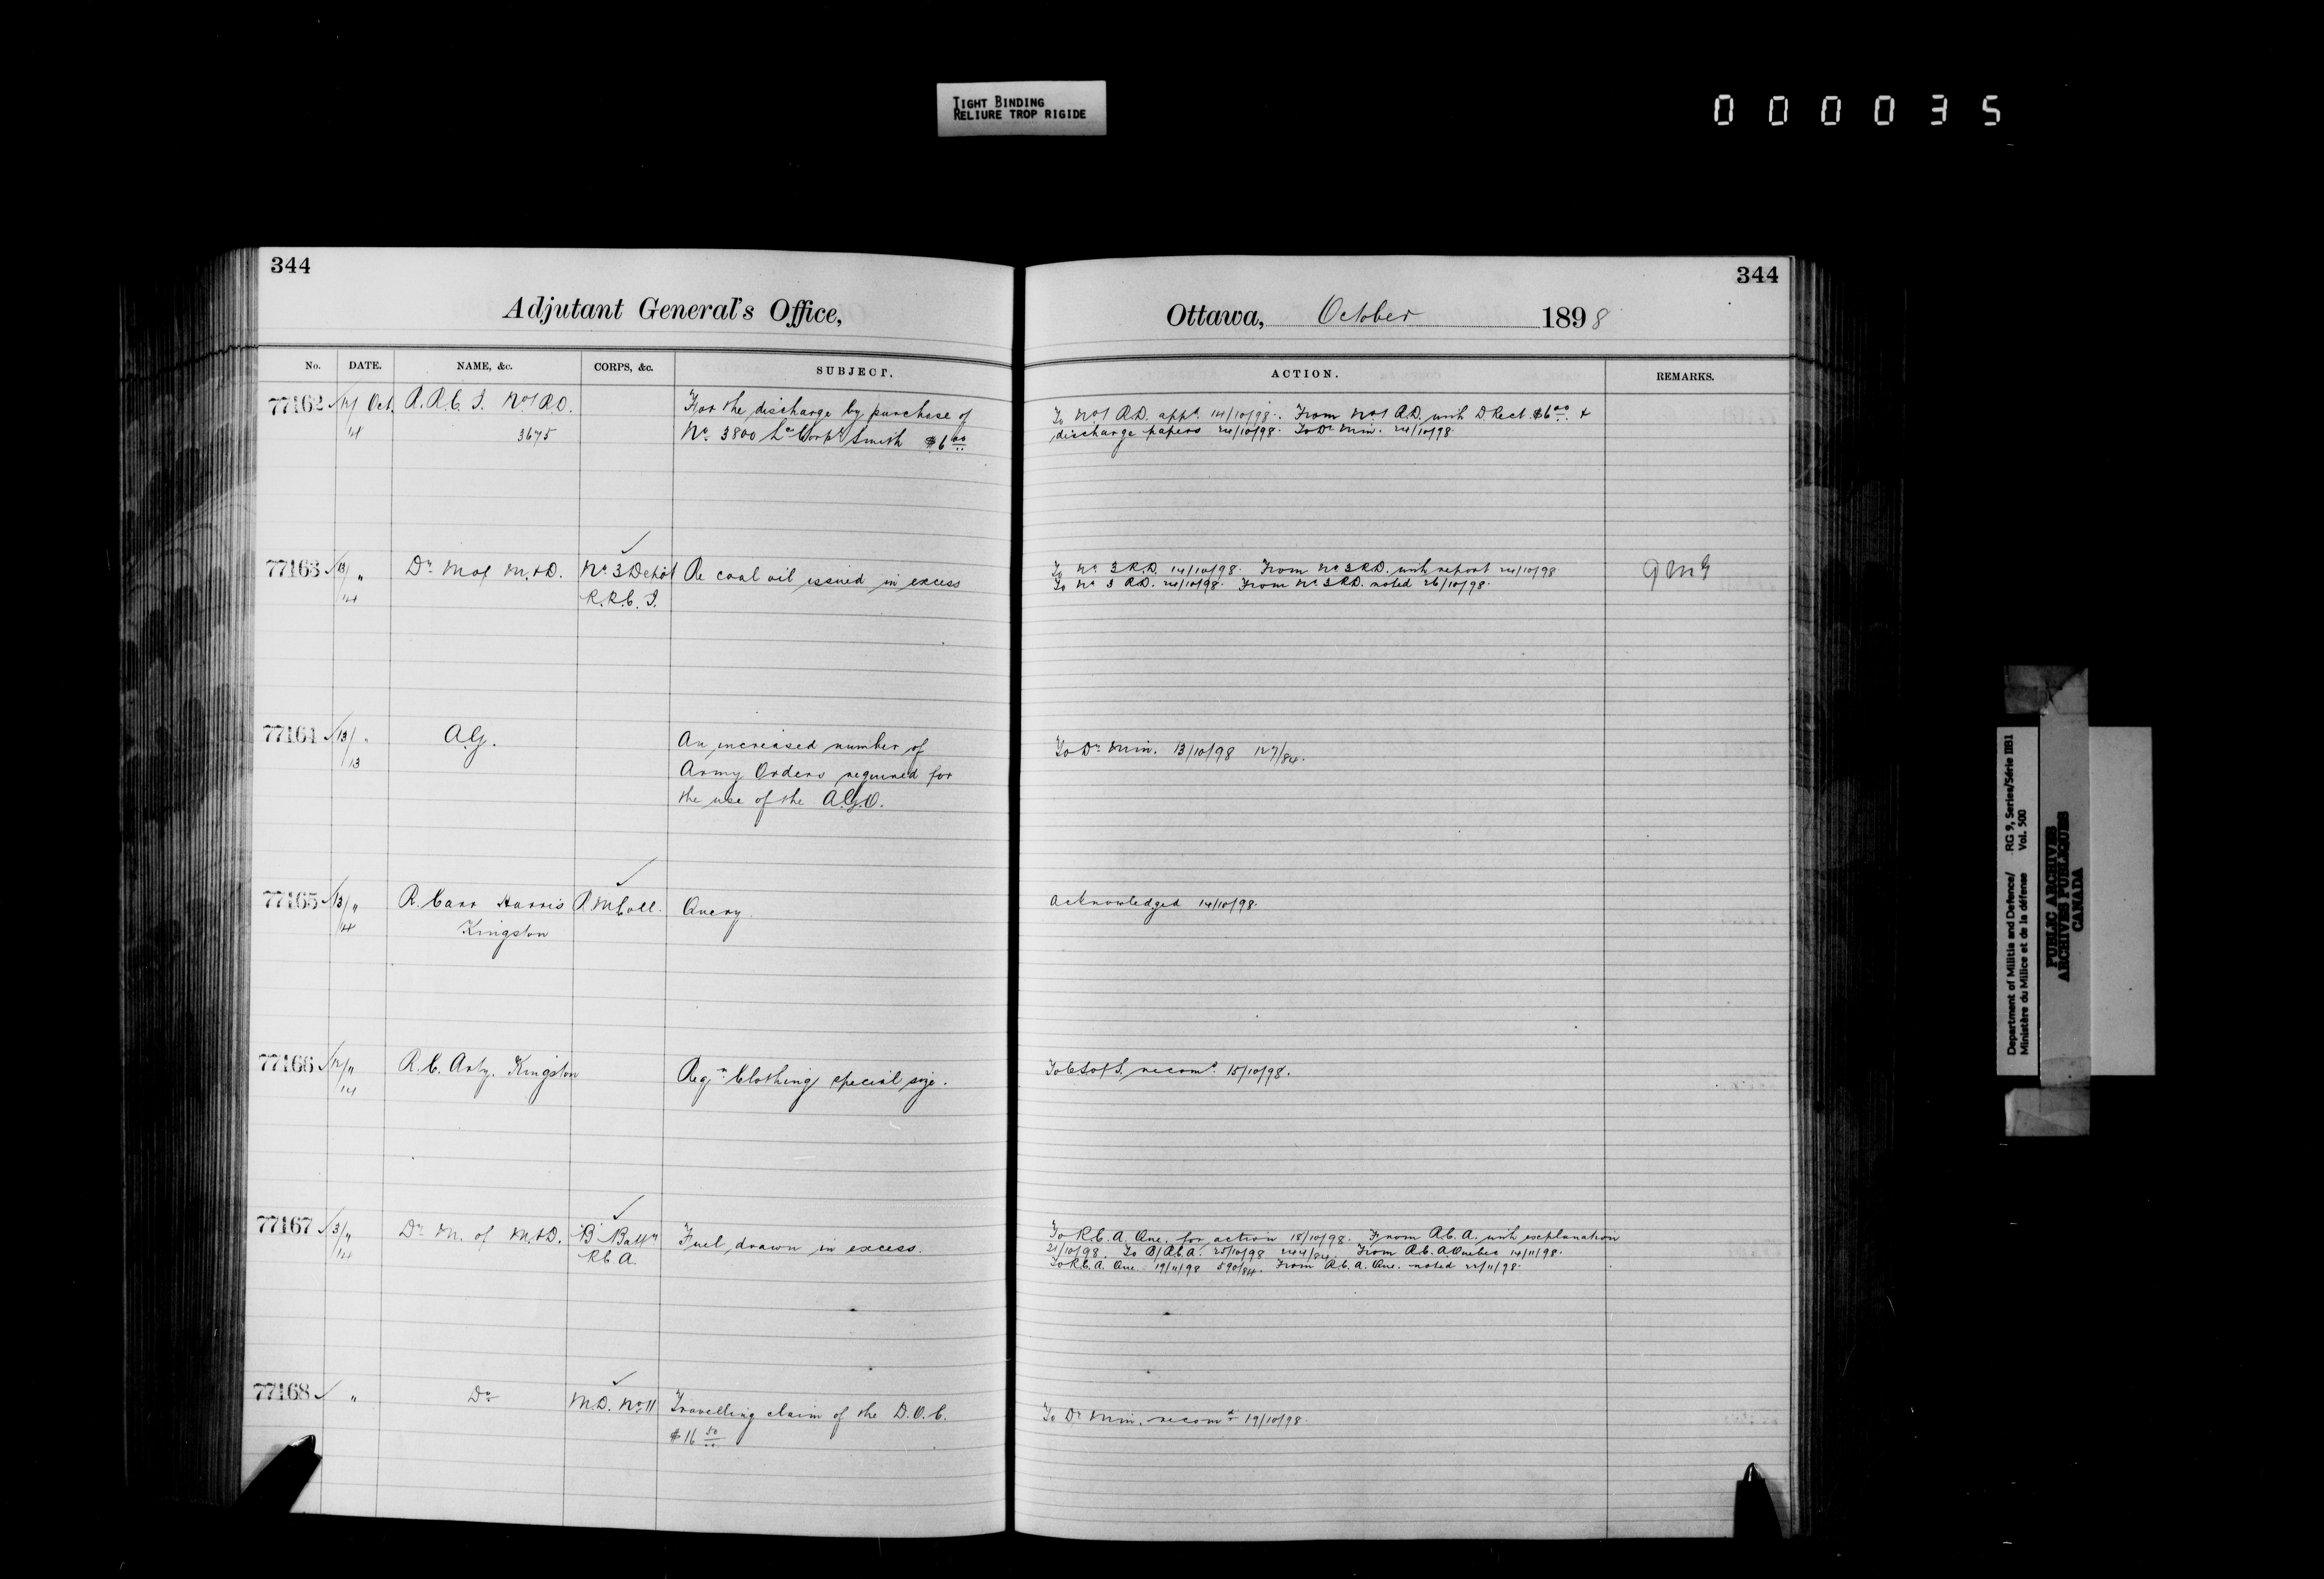 TIGHT BINDING
RELIURE TROP RIGIDE
000035
344
344
Adjutant General's Office,
Ottawa, October 1898
No. DATE. NAME, &c. CORPS, &c. SUBJECT. ACTION. REMARKS.
77162 12/14 Oct. R.R.C.I. No 1 R.D. 3675
For the discharge by purchase of
No. 3800 Lce Corpl Smith $6 00
To No 1 R.D. appd. 14/10/98. From No 1 R.D. with D Rect. $6 00 &
discharge papers 24/10/98. To Dr Min. 24/10/98.
77163 13/14 " Dr M of M. & D. No. 3 Depôt
R.R.C.I.
Re coal oil issued in excess
To No. 3 R.D. 14/10/98. From No 3 R.D. with report 24/10/98
To No 3 R.D. 24/10/98. From No 3 R.D. noted 26/10/98.
QMG
77164 13/13 " A.G.
An increased number of
Army Orders required for
the use of the A.G.O.
To Dr Min. 13/10/98 127/84.
77165 13/14 " R. Carr Harris R.M.Coll. Query.
Kingston
Acknowledged 14/10/98.
77166 12/14 " R.C. Arty. Kingston
Reqn Clothing special size.
To C S of S. recomd. 15/10/98.
77167 13/14 " Dr M. of M. & D. "B" Batty
R.C.A.
Fuel drawn in excess.
To R.C.A. Que. for action 18/10/98. From R.C.A. with explanation
21/10/98. To B/R.C.A. 25/10/98 244/84. From R.C.A. Quebec 14/11/98.
To R.C.A. Que. 19/11/98 590/84. From R.C.A. Que. noted 22/11/98.
77168 " Do M.D. No. 11 Travelling claim of the D.O.C.
$16 50
To Dr Min. recomd 19/10/98.
Department of Militia and Defence/ RG 9, Series/Série IIB1
Ministère du Milice et de la défense Vol. 500
PUBLIC ARCHIVES
ARCHIVES PUBLIQUES
CANADA